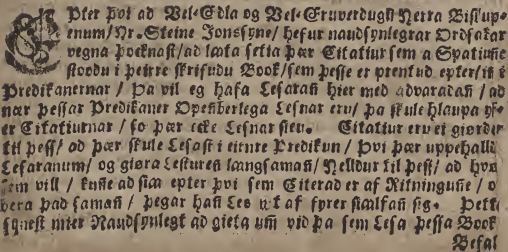 EPter þvi ad Vel-Edla og Vel-Eruverdugū Herra Biskup-
enum/Hr. Steine Jonssyne/ hefur naudsynlegrar Ordsakar
vegna þocknast/ad lata setia þær Citatiur sem a Spatiune
stoodu i þeirre skrifudu Book/sem þesse er prentud epter/iñ i
Predikanernar / Þa vil eg hafa Lesarañ hier med advaradañ / ad
nær þessar Predikaner Openberlega Lesnar eru/ þa skule hlaupa yf-
er Citatiurnar / so þær ecke Lesnar sieu. Citatiur eru ei giørder
til þess/ ad þær skule Lesast i eirnre Predikun / Þvi þær uppehalla
Lesaranum/ og giøra Lesturen langsamañ/ Helldur til þess/ ad hvør
sem vill / kuñe ad sia epter þvi sem Citerad er af Ritningune / o
bera þad samañ / þegar hañ Les út af fyrer sialfan sig. Þett
synest mier Naudsynlegt ad gieta um vid þa sem Lesa þessa Book
Befal